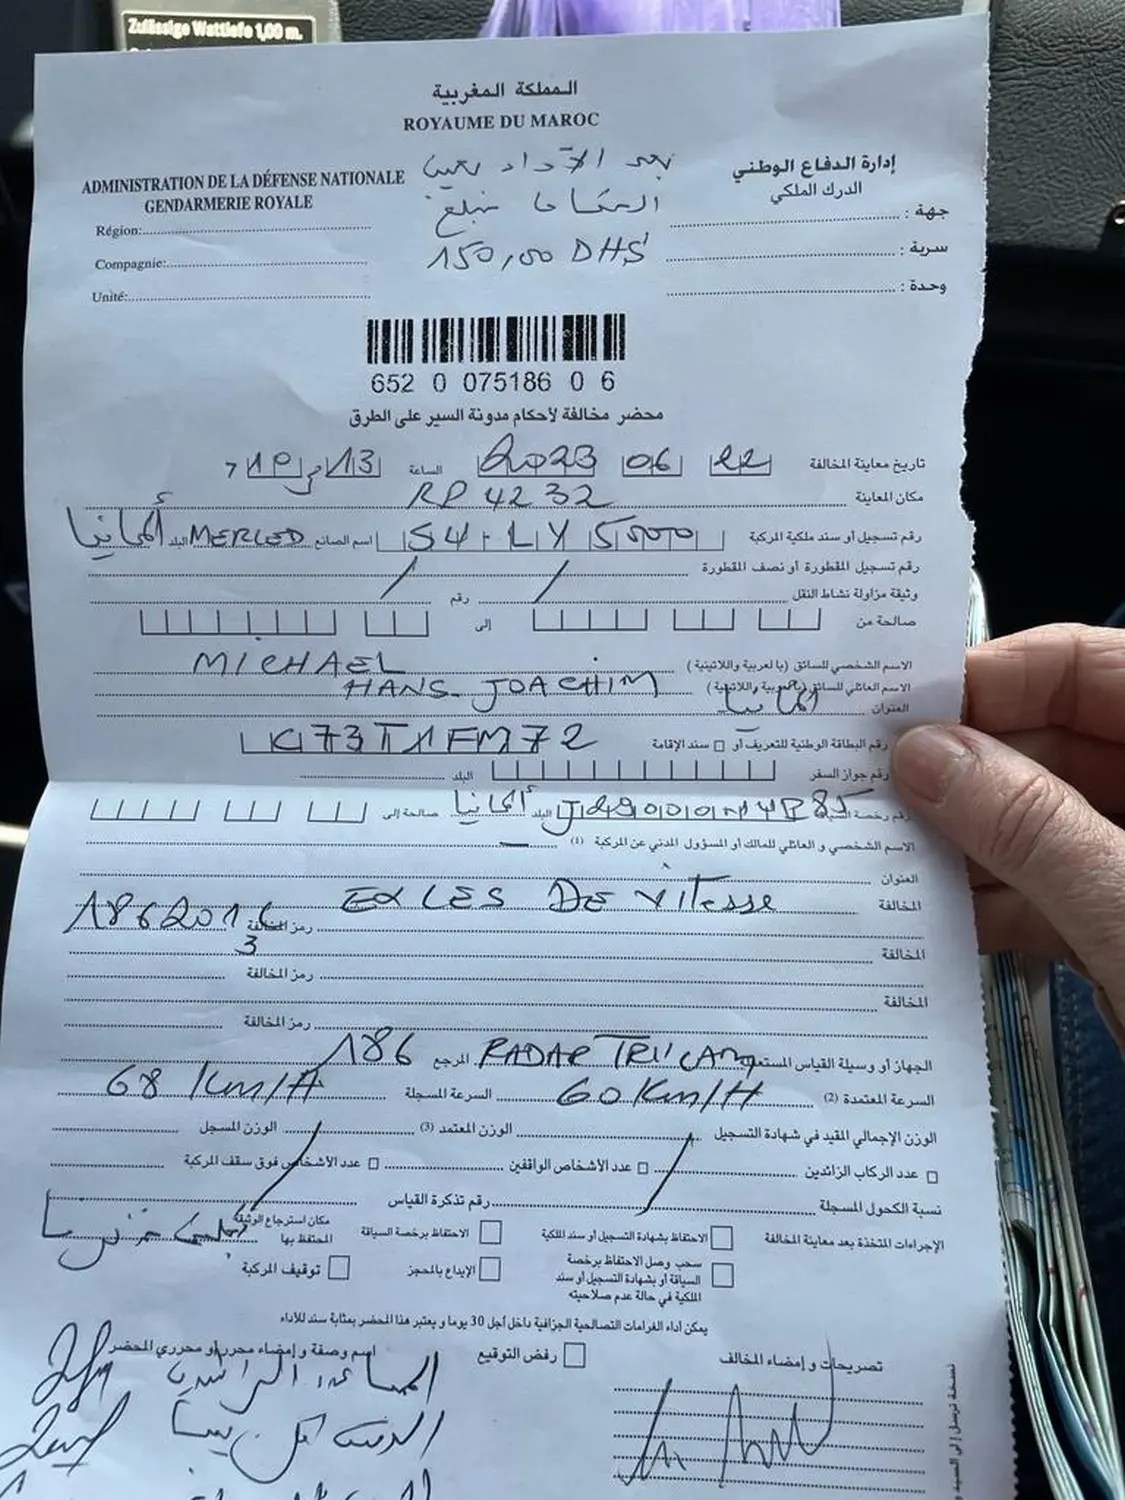 Zulässige Wattiefe 1,00 m.
المملكة المغربية
ROYAUME DU MAROC
ADMINISTRATION DE LA DÉFENSE NATIONALE
GENDARMERIE ROYALE
Région:
Compagnie:
Unité:
إدارة الدفاع الوطني
الدرك الملكي
جهة :
سرية :
وحدة :
بعد الأداء
مبلغ
150,00 DHS
652 0 075186 0 6
محضر مخالفة لأحكام مدونة السير على الطرق
تاريخ معاينة المخالفة 22 06 2023 الساعة 13 و 10
مكان المعاينة RP 4232
رقم تسجيل أو سند ملكية المركبة S4-LY 5000 اسم الصانع MERCED البلد ألمانيا
رقم تسجيل المقطورة أو نصف المقطورة /
وثيقة مزاولة نشاط النقل / رقم
صالحة من إلى
الاسم الشخصي للسائق (بالعربية واللاتينية) MICHAEL
الاسم العائلي للسائق (بالعربية واللاتينية) HANS-JOACHIM
العنوان ألمانيا
رقم البطاقة الوطنية للتعريف أو سند الإقامة
رقم جواز السفر البلد
رقم رخصة السياقة البلد ألمانيا صالحة إلى
الاسم الشخصي و العائلي للمالك أو المسؤول المدني عن المركبة (1) —
العنوان
المخالفة EXCES DE VITesse
رمز المخالفة
المخالفة
رمز المخالفة
المخالفة
رمز المخالفة
الجهاز أو وسيلة القياس المستعملة RADAR TRUCAM المرجع 186
السرعة المعتمدة (2) 60 Km/H السرعة المسجلة 68 Km/H
الوزن الإجمالي المقيد في شهادة التسجيل الوزن المعتمد (3) الوزن المسجل
عدد الركاب الزائدين عدد الأشخاص الواقفين عدد الأشخاص فوق سقف المركبة
نسبة الكحول المسجلة رقم تذكرة القياس
الإجراءات المتخذة بعد معاينة المخالفة الاحتفاظ بشهادة التسجيل أو سند الملكية الاحتفاظ برخصة السياقة مكان استرجاع الوثيقة المحتفظ بها
سحب وصل الاحتفاظ برخصة السياقة أو بشهادة التسجيل أو سند الملكية في حالة عدم صلاحيته الإيداع بالمحجز توقيف المركبة
يمكن أداء الغرامات التصالحية الجزافية داخل أجل 30 يوما و يعتبر هذا المحضر بمثابة سند للأداء
تصريحات و إمضاء المخالف رفض التوقيع اسم وصفة و إمضاء محرر أو محرري المحضر
نسخة ترسل إلى السيد و